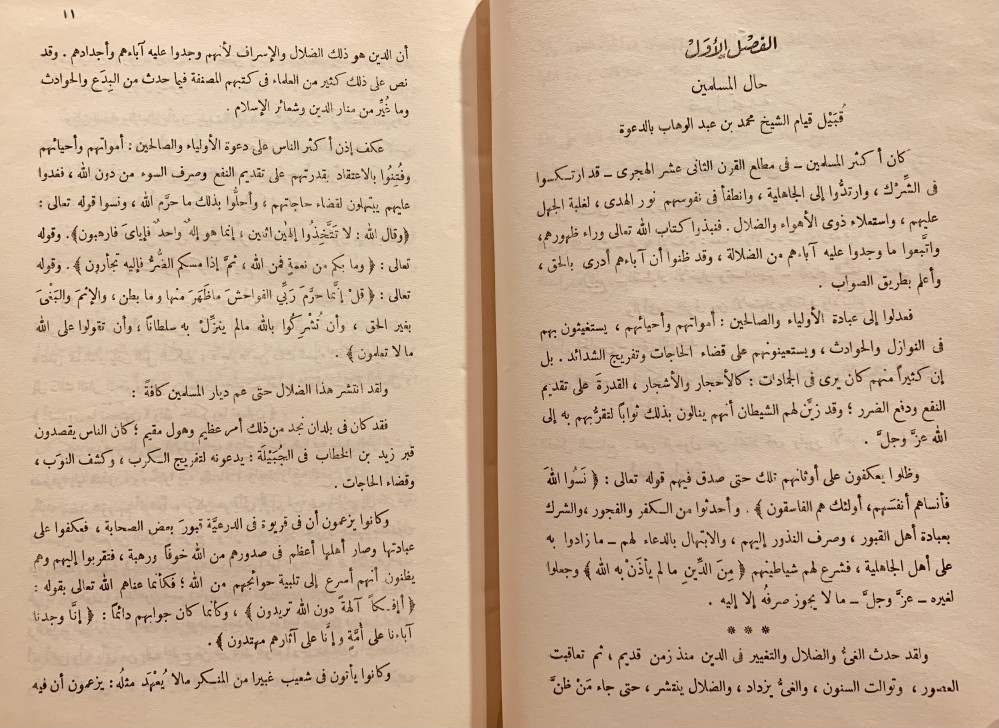 الفصْل الأوَل
حال المسلمين
قُبَيْل قيام الشيخ محمد بن عبد الوهاب بالدعوة
كان أكثر المسلمين ــ فى مطلع القرن الثانى عشر الهجرى ــ قد ارتكسوا
فى الشِّرْك ، وارتدُّوا إلى الجاهلية ، وانطفأ فى نفوسهم نور الهدى ، لغلبة الجهل
عليهم ، واستعلاء ذوى الأهواء والضلال . فنبذوا كتاب الله تعالى وراء ظهورهم،
واتَّبعوا ما وجدوا عليه آباءهم من الضلالة ، وقد ظنوا أن آباءهم أدرى بالحق ،
وأعلم بطريق الصواب .
فعدلوا إلى عبادة الأولياء والصالحين : أمواتهم وأحيائهم ، يستغيثون بهم
فى النوازل والحوادث ، ويستعينونهم على قضاء الحاجات وتفريج الشدائد . بل
إن كثيراً منهم كان يرى فى الجمادات : كالأحجار والأشجار ، القدرةَ على تقديم
النفع ودفع الضرر ؛ وقد زيَّن لهم الشيطان أنهم ينالون بذلك ثواباً لتقرُّبهم به إلى
الله عزَّ وجلَّ .
وظلوا يعكفون على أوثانهم تلك حتى صدق فيهم قوله تعالى : ﴿ نَسُوا اللهَ
فأنساهم أنفسَهم، أولئك هم الفاسقون ﴾ . وأحدثوا من الكفر والفجور ،والشرك
بعبادة أهل القبور ، وصرف النذور إليهم ، والابتهال بالدعاء لهم ــ ما زادوا به
على أهل الجاهلية ، فشرع لهم شياطينهم ﴿ مِنَ الدِّينِ ما لم يأذنْ به الله ﴾ وجعلوا
لغيره ــ عزَّ وجلَّ ــ ما لا يجوز صرفُه إلا إليه .
* * *
ولقد حدث الغىُّ والضلال والتغيير فى الدين منذ زمن قديم ، ثم تعاقبت
العصور ، وتوالت السنون ، والغىُّ يزداد ، والضلال ينتشر ، حتى جاء مَنْ ظنَّ
١١
أن الدين هو ذلك الضلال والإسراف لأنهم وجدوا عليه آباءهم وأجدادهم . وقد
نص على ذلك كثير من العلماء فى كتبهم المصنفة فيما حدث من البِدَع والحوادث
وما غُيِّر من منار الدين وشعائر الإسلام .
عكف إذن أكثر الناس على دعوة الأولياء والصالحين : أمواتهم وأحيائهم
وفُتِنُوا بالاعتقاد بقدرتهم على تقديم النفع وصرف السوء من دون الله ، فغدوا
عليهم يبتهلون لقضاء حاجاتهم ، وأحلُّوا بذلك ما حرَّم الله ، ونسوا قوله تعالى :
﴿وقال الله : لا تتَّخِذُوا إلهين اثنين ، إنما هو إلهٌ واحدٌ فإياىَ فارهبون﴾. وقوله
تعالى : ﴿ وما بكم من نعمةٍ فمن الله ، ثمَّ إذا مسكم الضُّرُّ فإليه تجأرون ﴾ . وقوله
تعالى : ﴿ قلْ إنَّما حرَّمَ رَبِّي الفواحشَ ماظَهَرَ منها وما بطن ، والإثمَ والبَغْىَ
بغير الحق ، وأن تُشْرِكُوا بالله مالم ينزِّلْ به سلطاناً ، وأن تقولوا على الله
ما لا تعلمون ﴾ .
ولقد انتشر هذا الضلال حتى عم ديار المسلمين كافةً :
فقد كان فى بلدان نجد من ذلك أمر عظيم وهول مقيم ؛ كان الناس يقصدون
قبر زيد بن الخطاب فى الجُبَيْلَة : يدعونه لتفريج الكرب ، وكشف النوَب ،
وقضاء الحاجات .
وكانوا يزعمون أن فى قريوة فى الدرعيَّة قبورَ بعض الصحابة ، فعكفوا على
عبادتها وصار أهلها أعظم فى صدورهم من الله خوفاً ورهبة ، فتقربوا إليهم وهم
يظنون أنهم أسرع إلى تلبية حوائجهم من الله ؛ فكأنما عناهم الله تعالى بقوله :
﴿ أإفكاً آلهةً دون الله تريدون ﴾ ، وكأنما كان جوابهم دائماً : ﴿ إنَّا وجدنا
آباءنا على أُمَّةٍ وإنَّا على آثارهم مهتدون ﴾ .
وكانوا يأتون فى شعيب غبيرا من المنكر مالا يُعْهَد مثلُه : يزعمون أن فيه